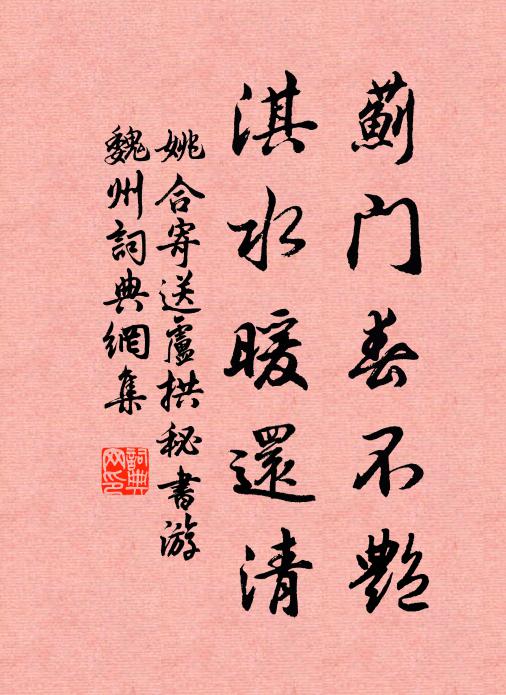 薊门春不艷
淇水暖還清
姚合寄送盧拱秘書游
魏州詞典網集
詞典网印